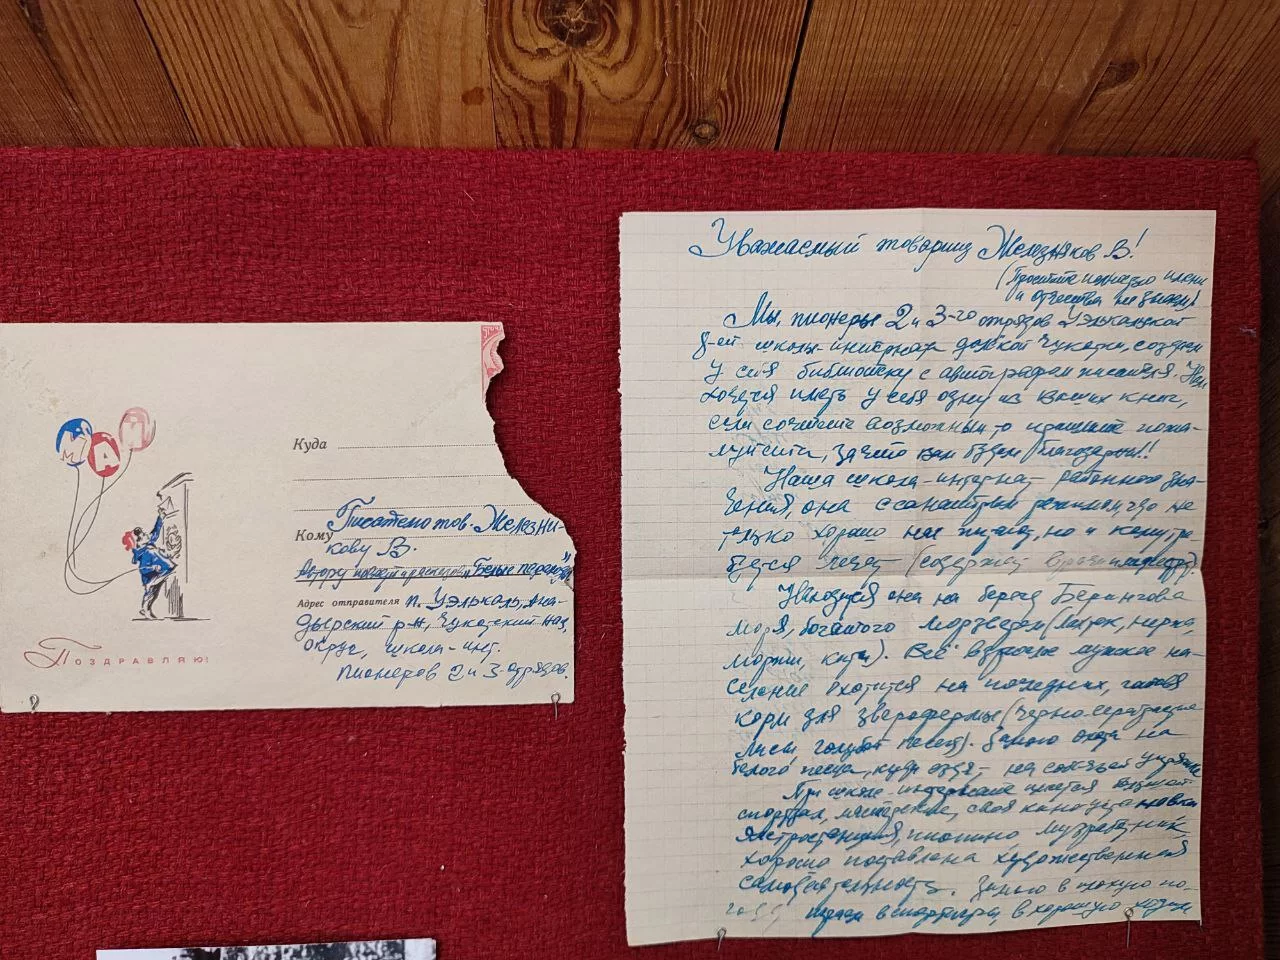 1 МАЯ
ПОЗДРАВЛЯЮ!
Куда
Кому
Писателю тов. Железни-
кову В.
Автору "Белые пароходы"
Адрес отправителя п. Уэлькаль, Ана-
дырский р-н, Чукотский нац.
округ, школа-инт.
пионеров 2 и 3 отрядов.
Уважаемый товарищ Железняков В!
(Простите имени
и отчества не знаем)
Мы, пионеры 2 и 3-го отрядов Уэлькальской
8-ей школы-интерната далёкой Чукотки, создаем
у себя библиотеку с автографом писателя. Нам
хочется иметь у себя одну из Ваших книг,
если сочтете возможным, то пришлите пожа-
луйста, за что вам будем благодарны!!
Наша школа-интернат районного зна-
чения, она с санаторным режимом, где не
только хорошо нас питают, но и кому тре-
буется лечат (содержат
Находится она на берегу Берингова
моря, богатого морзверем (лахтак, нерпа,
моржи, киты). Всё взрослое мужское на-
селение охотится на последних, готовя
корм для зверофермы (черно-серебристые
лисы голубой песец). Зимою охота на
белого песца,
При школе-интернате имеется
спортзал, мастерские, своя киноустановка
электростанция, пианино
хорошо поставлена художественная
самодеятельность. Зимою в плохую по-
году играем в спортзале, в хорошую